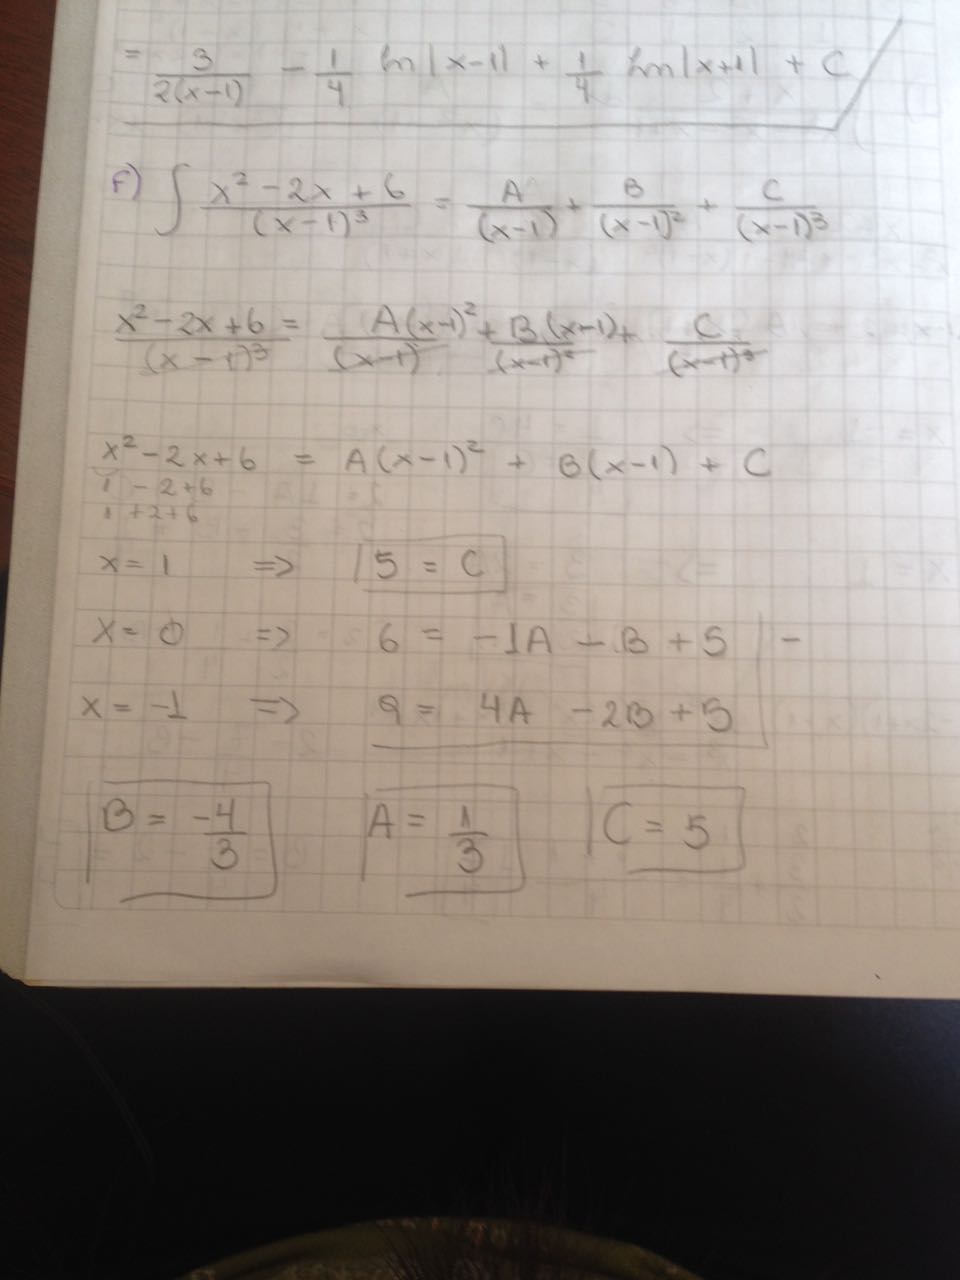 = 3/(2(x-1)) - 1/4 ln|x-1| + 1/4 ln|x+1| + C
F) ∫ (x² - 2x + 6)/((x-1)³) = A/((x-1)) + B/((x-1)²) + C/((x-1)³)
(x² - 2x + 6)/((x-1)³) = A(x-1)²/((x-1)) + B(x-1)/((x-1)²) + C/((x-1)³)
x² - 2x + 6 = A(x-1)² + B(x-1) + C
1 - 2 + 6
1 + 2 + 6
x = 1 => 5 = C
x = 0 => 6 = -1A - B + 5 | -
x = -1 => 9 = 4A - 2B + 5
B = -4/3 A = 1/3 C = 5